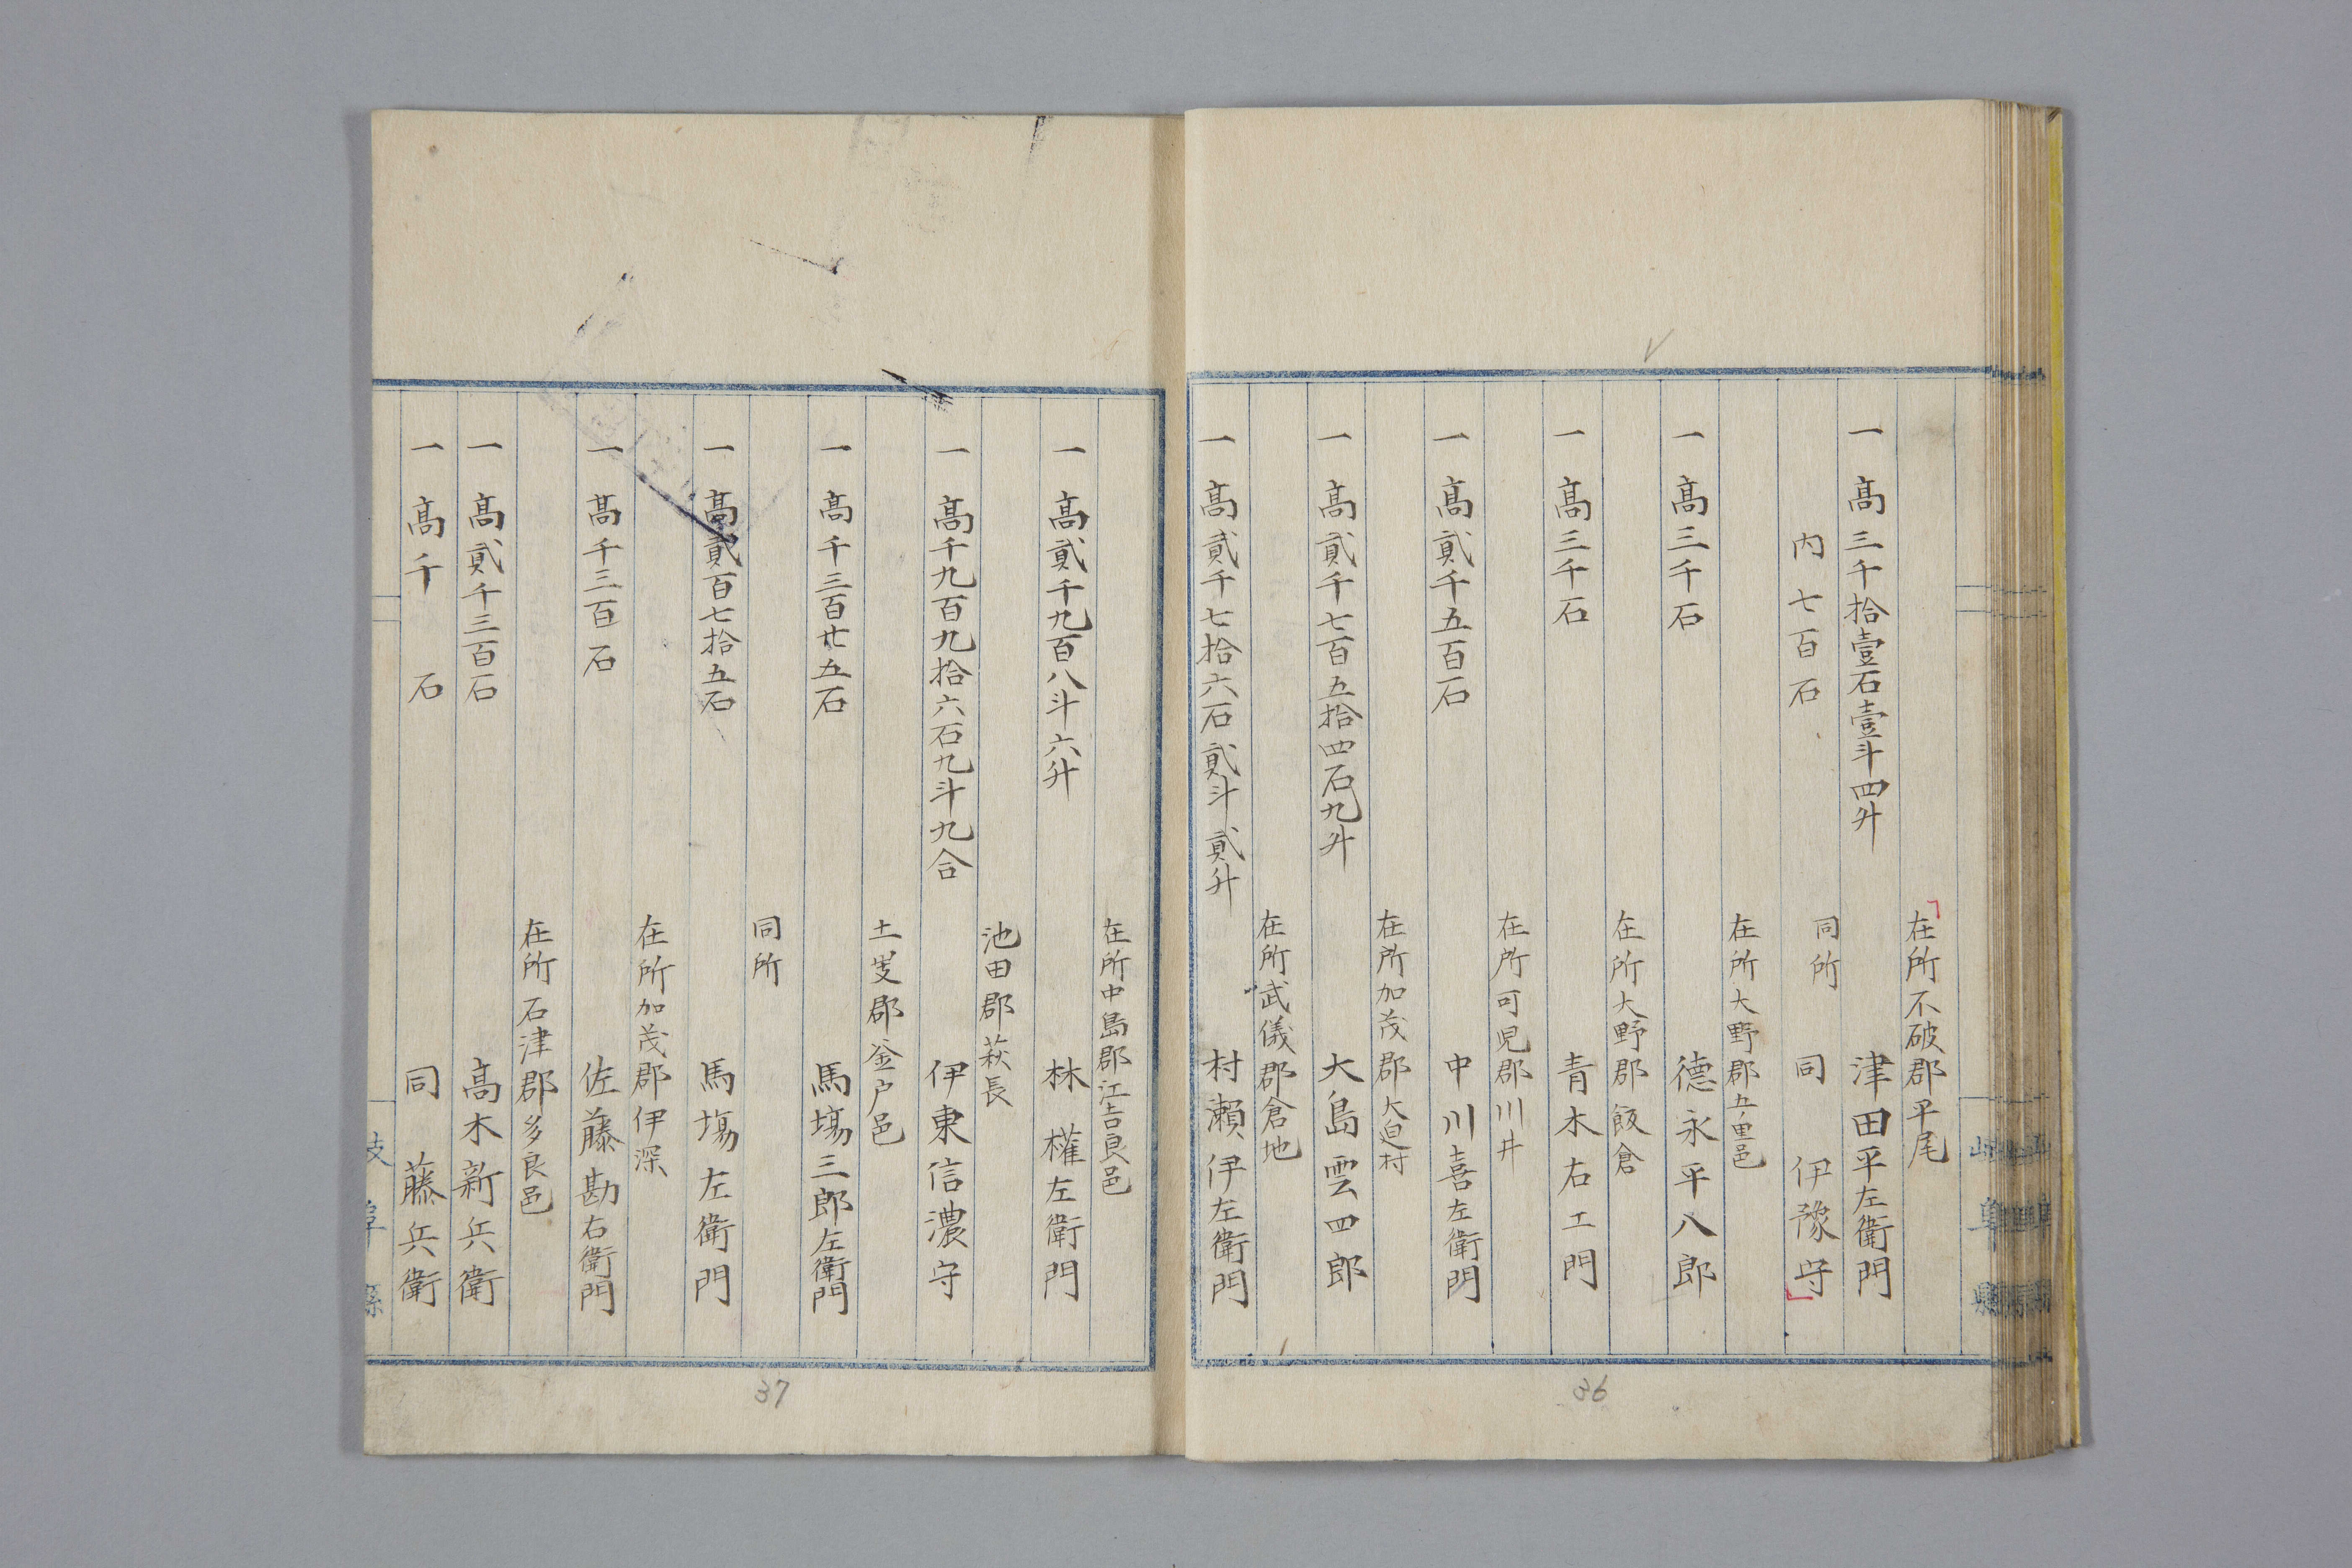 在所不破郡平尾
一高三千拾壹石壹斗四升 津田平左衛門
同所
内七百石 同 伊豫守
在所大野郡五ノ里邑
一高三千石 德永平八郎
在所大野郡飯倉
一高三千石 青木右エ門
在所可児郡川井
一高貳千五百石 中川喜左衛門
在所加茂郡大迫村
一高貳千七百五拾四石九升 大島雲四郎
在所武儀郡倉地
一高貳千七拾六石貳斗貳升 村瀬伊左衛門
36
在所中島郡江吉良邑
一高貳千九百八斗六升 林 權左衛門
池田郡萩長
一高千九百九拾六石九斗九合 伊東信濃守
土岐郡釜戸邑
一高千三百廿五石 馬塲三郎左衛門
同所
一高貳百七拾五石 馬塲左衛門
在所加茂郡伊深
一高千三百石 佐藤勘右衛門
在所石津郡多良邑
一高貳千三百石 高木新兵衛
一高千石 同 藤兵衛
岐阜縣
37